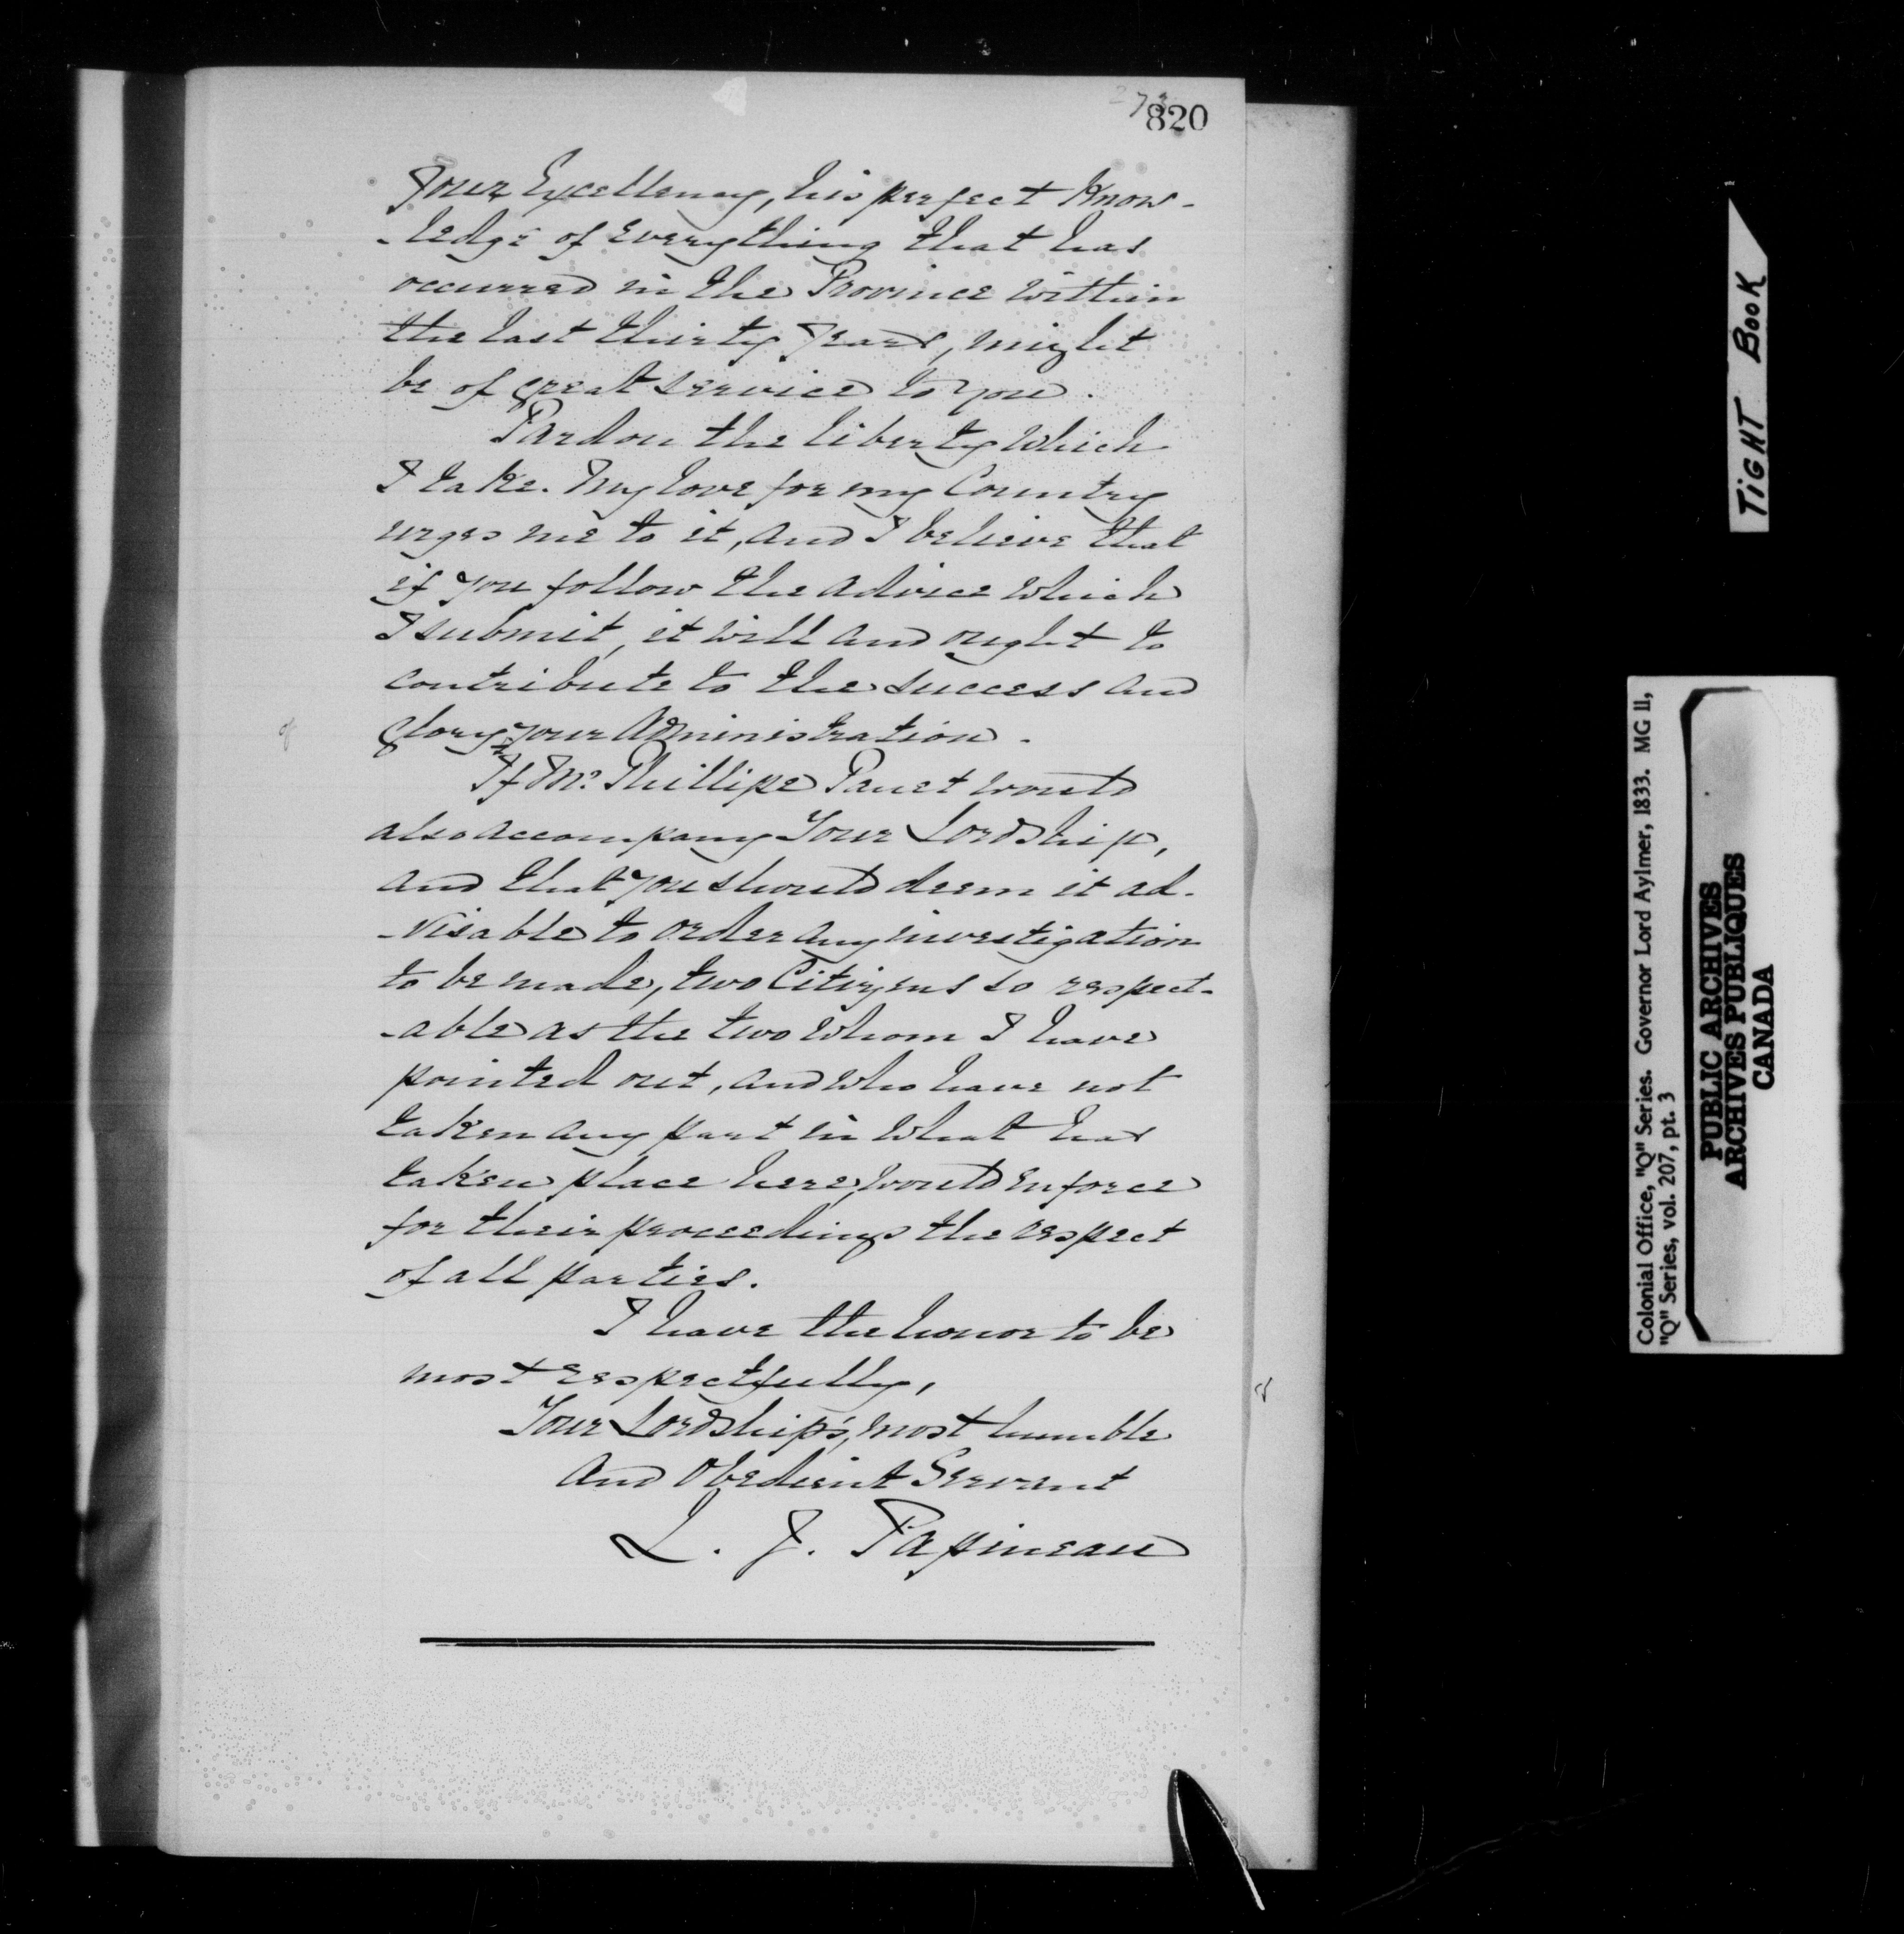 273
820
Your Excellency, his perfect Know-
-ledge of everything that has
occurred in the Province within
the last thirty years, might
be of great service to you.
Pardon the liberty which
I take. My love for my Country
urges me to it, and I believe that
if you follow the advice which
I submit, it will and ought to
contribute to the success and
of
glory your Administration.
If Mr. Phillipe Panet would
also accompany Your Lordship,
and that you should deem it ad-
-visable to order any investigation
to be made, two Citizens so respect-
-able as the two whom I have
pointed out, and who have not
taken any part in what has
taken place here, would enforce
for their proceedings the respect
of all parties.
I have the honor to be
most respectfully,
Your Lordship's, most humble
and Obedient Servant
L. J. Papineau
TIGHT BOOK
Colonial Office, "Q" Series. Governor Lord Aylmer, 1833. MG 11,
"Q" Series, vol. 207, pt. 3
PUBLIC ARCHIVES
ARCHIVES PUBLIQUES
CANADA